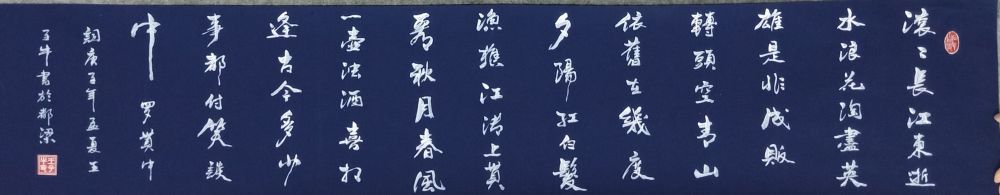 滚々長江東逝
水浪花淘盡英
雄是非成敗
轉頭空青山
依舊在幾度
夕陽紅白髮
漁樵江渚上貫
看秋月春風
一壺浊酒喜相
逢古今多少
事都付笑談
中 罗貫中
詞庚子年孟夏王
子牛書於都梁